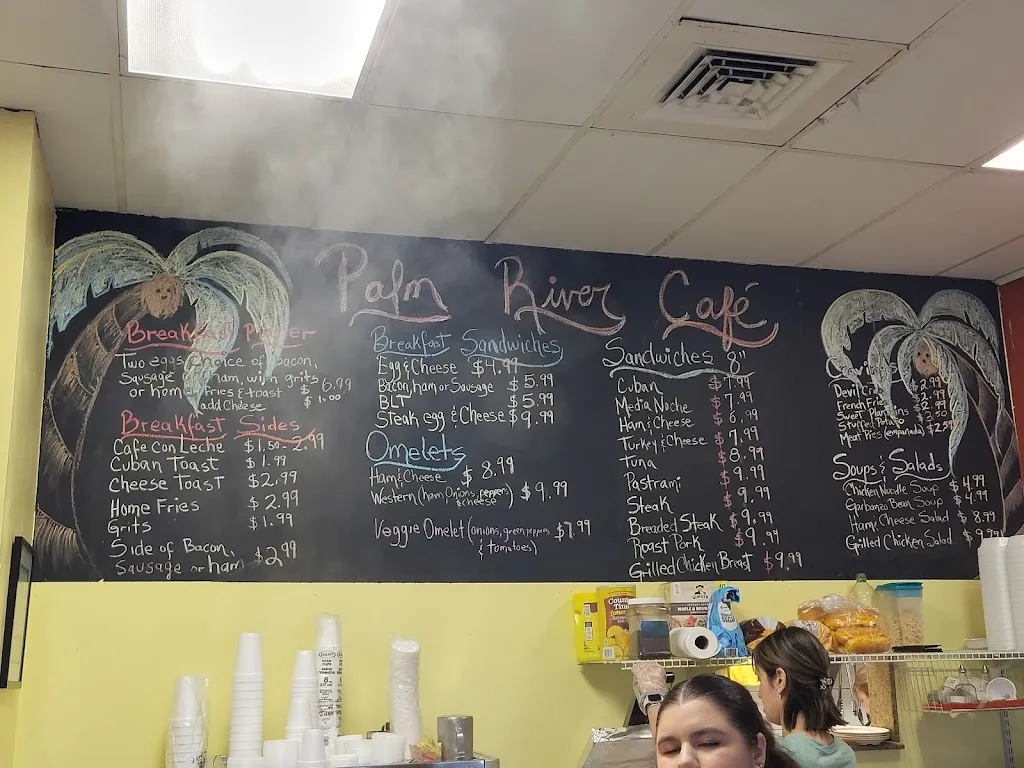 Palm River Café
Breakfast Platter
Two eggs choice of Bacon,
Sausage or ham, with grits
or home Fries & toast $6.99
add Cheese $1.00
Breakfast Sides
Cafe con Leche $1.50-2.99
Cuban Toast $1.99
Cheese Toast $2.99
Home Fries $2.99
Grits $1.99
Side of Bacon,
Sausage or ham $2.99
Breakfast Sandwiches
Egg & Cheese $4.99
Bacon, ham or Sausage $5.99
BLT $5.99
Steak egg & Cheese $9.99
Omelets
Ham & Cheese $8.99
Western (ham, Onions, peppers & cheese) $9.99
Veggie Omelet (onions, green peppers & tomatoes) $7.99
Sandwiches 8"
Cuban $7.99
Media Noche $7.99
Ham & Cheese $6.99
Turkey & Cheese $7.99
Tuna $8.99
Pastrami $9.99
Steak $9.99
Breaded Steak $9.99
Roast Pork $9.99
Grilled Chicken Breast $9.99
Devil $2.99
French Fries $2.99
Sweet Plantains $2.99
Stuffed Potato $2.50
Meat Pies (empanada) $2.59
Soups & Salads
Chicken Noodle Soup $4.99
Garbanzo Bean Soup $4.99
Ham & Cheese Salad $8.99
Grilled Chicken Salad $9.99
Country Time
MAPLE & BROWN